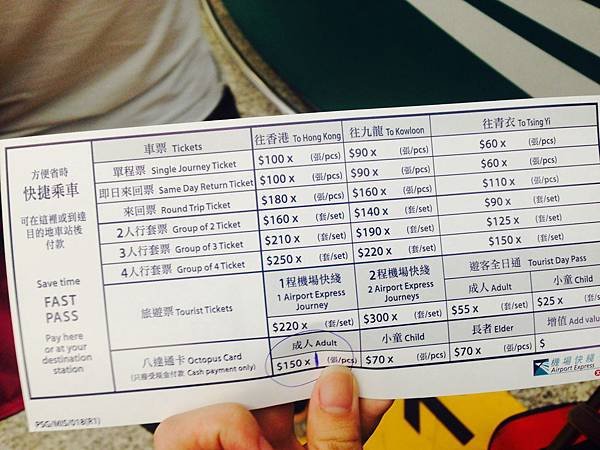 方便省時
快捷乘車
可在這裡或到達
目的地車站後
付款
Save time
FAST
PASS
Pay here
or at your
destination
station
車票 Tickets 往香港 To Hong Kong 往九龍 To Kowloon 往青衣 To Tsing Yi
單程票 Single Journey Ticket $100 x (張/pcs) $90 x (張/pcs) $60 x (張/pcs)
即日來回票 Same Day Return Ticket $100 x (張/pcs) $90 x (張/pcs) $60 x (張/pcs)
來回票 Round Trip Ticket $180 x (張/pcs) $160 x (張/pcs) $110 x (張/pcs)
2人行套票 Group of 2 Ticket $160 x (套/set) $140 x (套/set) $90 x (套/set)
3人行套票 Group of 3 Ticket $210 x (套/set) $190 x (套/set) $125 x (套/set)
4人行套票 Group of 4 Ticket $250 x (套/set) $220 x (套/set) $150 x (套/set)
旅遊票 Tourist Tickets
1程機場快綫
1 Airport Express
Journey
2程機場快綫
2 Airport Express
Journeys
遊客全日通 Tourist Day Pass
成人 Adult 小童 Child
$220 x (套/set) $300 x (套/set) $55 x (套/set) $25 x (套/set)
八達通卡 Octopus Card
(只接受現金付款 Cash payment only)
成人 Adult 小童 Child 長者 Elder 增值 Add value
$150 x 1 (張/pcs) $70 x (張/pcs) $70 x (張/pcs) $
機場快綫
Airport Express
PSG/MIS/018(R1)